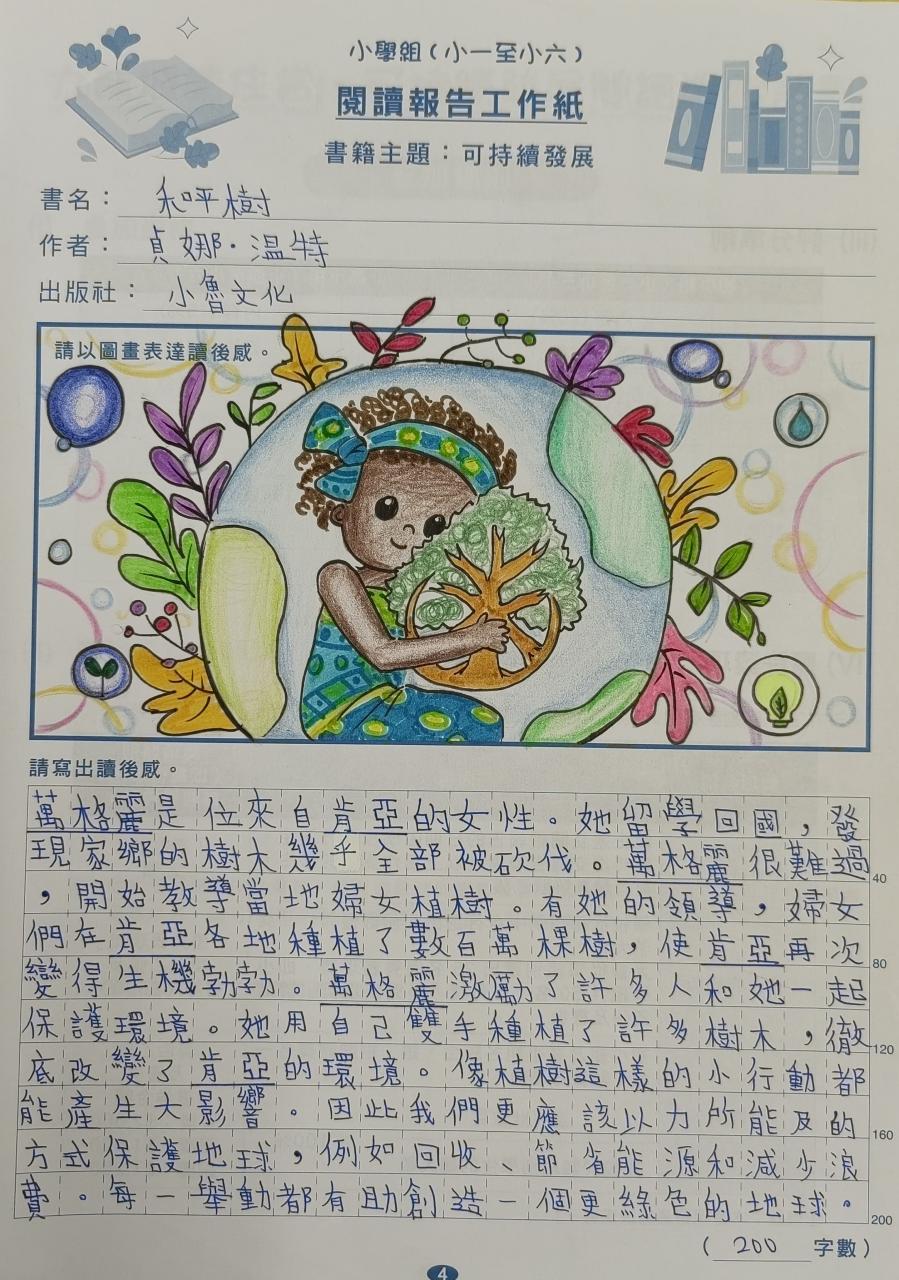 小學組(小一至小六)
閱讀報告工作紙
書籍主題：可持續發展
書名： 和呼樹
作者： 貞娜·溫特
出版社： 小魯文化
請以圖畫表達讀後感。
請寫出讀後感。
萬格麗是位來自肯亞的女性。她留學回國，發
現家鄉的樹木幾乎全部被砍伐。萬格麗很難過
40
，開始教導當地婦女植樹。有她的領導，婦女
們在肯亞各地種植了數百萬棵樹，使肯亞再次
80
變得生機勃勃。萬格麗激勵了許多人和她一起
保護環境。她用自己雙手種植了許多樹木，徹
120
底改變了肯亞的環境。像植樹這樣的小行動都
能產生大影響。因此我們更應該以力所能及的
160
方式保護地球，例如回收、節省能源和減少浪
費。每一舉動都有助創造一個更綠色的地球。
200
( 200 字數)
4